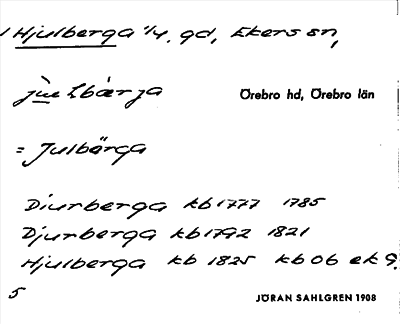 Hjulberga 1/4. gd, Ekers sn,
Örebro hd, Örebro län
= Julbärga
Djurberga kb 1777 1785
Djurberga kb 1792 1821
Hjulberga kb 1825 kb 06 ek 9.
5
JÖRAN SAHLGREN 1908